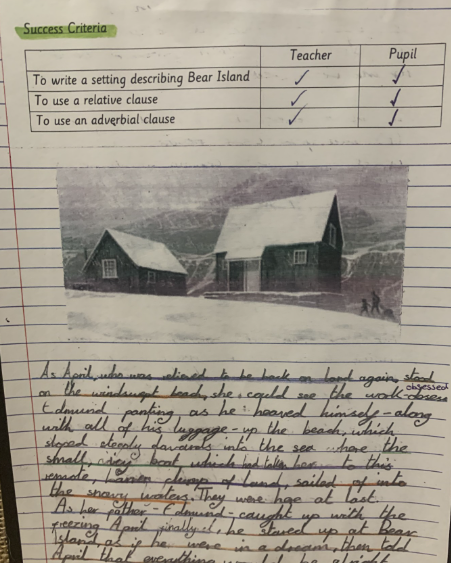 Success Criteria
Teacher Pupil
To write a setting describing Bear Island ✓ ✓
To use a relative clause ✓ ✓
To use an adverbial clause ✓ ✓
As April, who was relieved to be back on land again, stood
on the windswept beach, she could see the work obsessed
Edmund panting as he heaved himself - along
with all of his luggage - up the beach, which
sloped steeply into the sea the
small, boat, which had taken her to this
remote, barren clump of land, sailed of into
the snowy waters. They were hae at last.
As her father - Edmund - caught up with the
freezing April he stared up at Bear
Island, as if he were in a dream, then told
April that everything would be alright